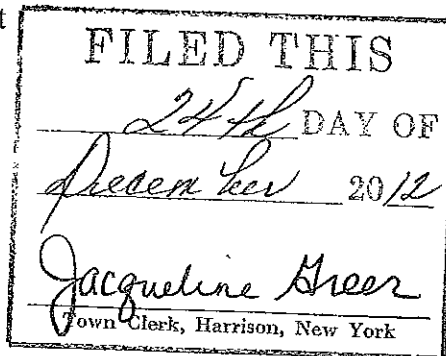 t
FILED THIS
24th DAY OF
December 2012
Jacqueline Greer
Town Clerk, Harrison, New York